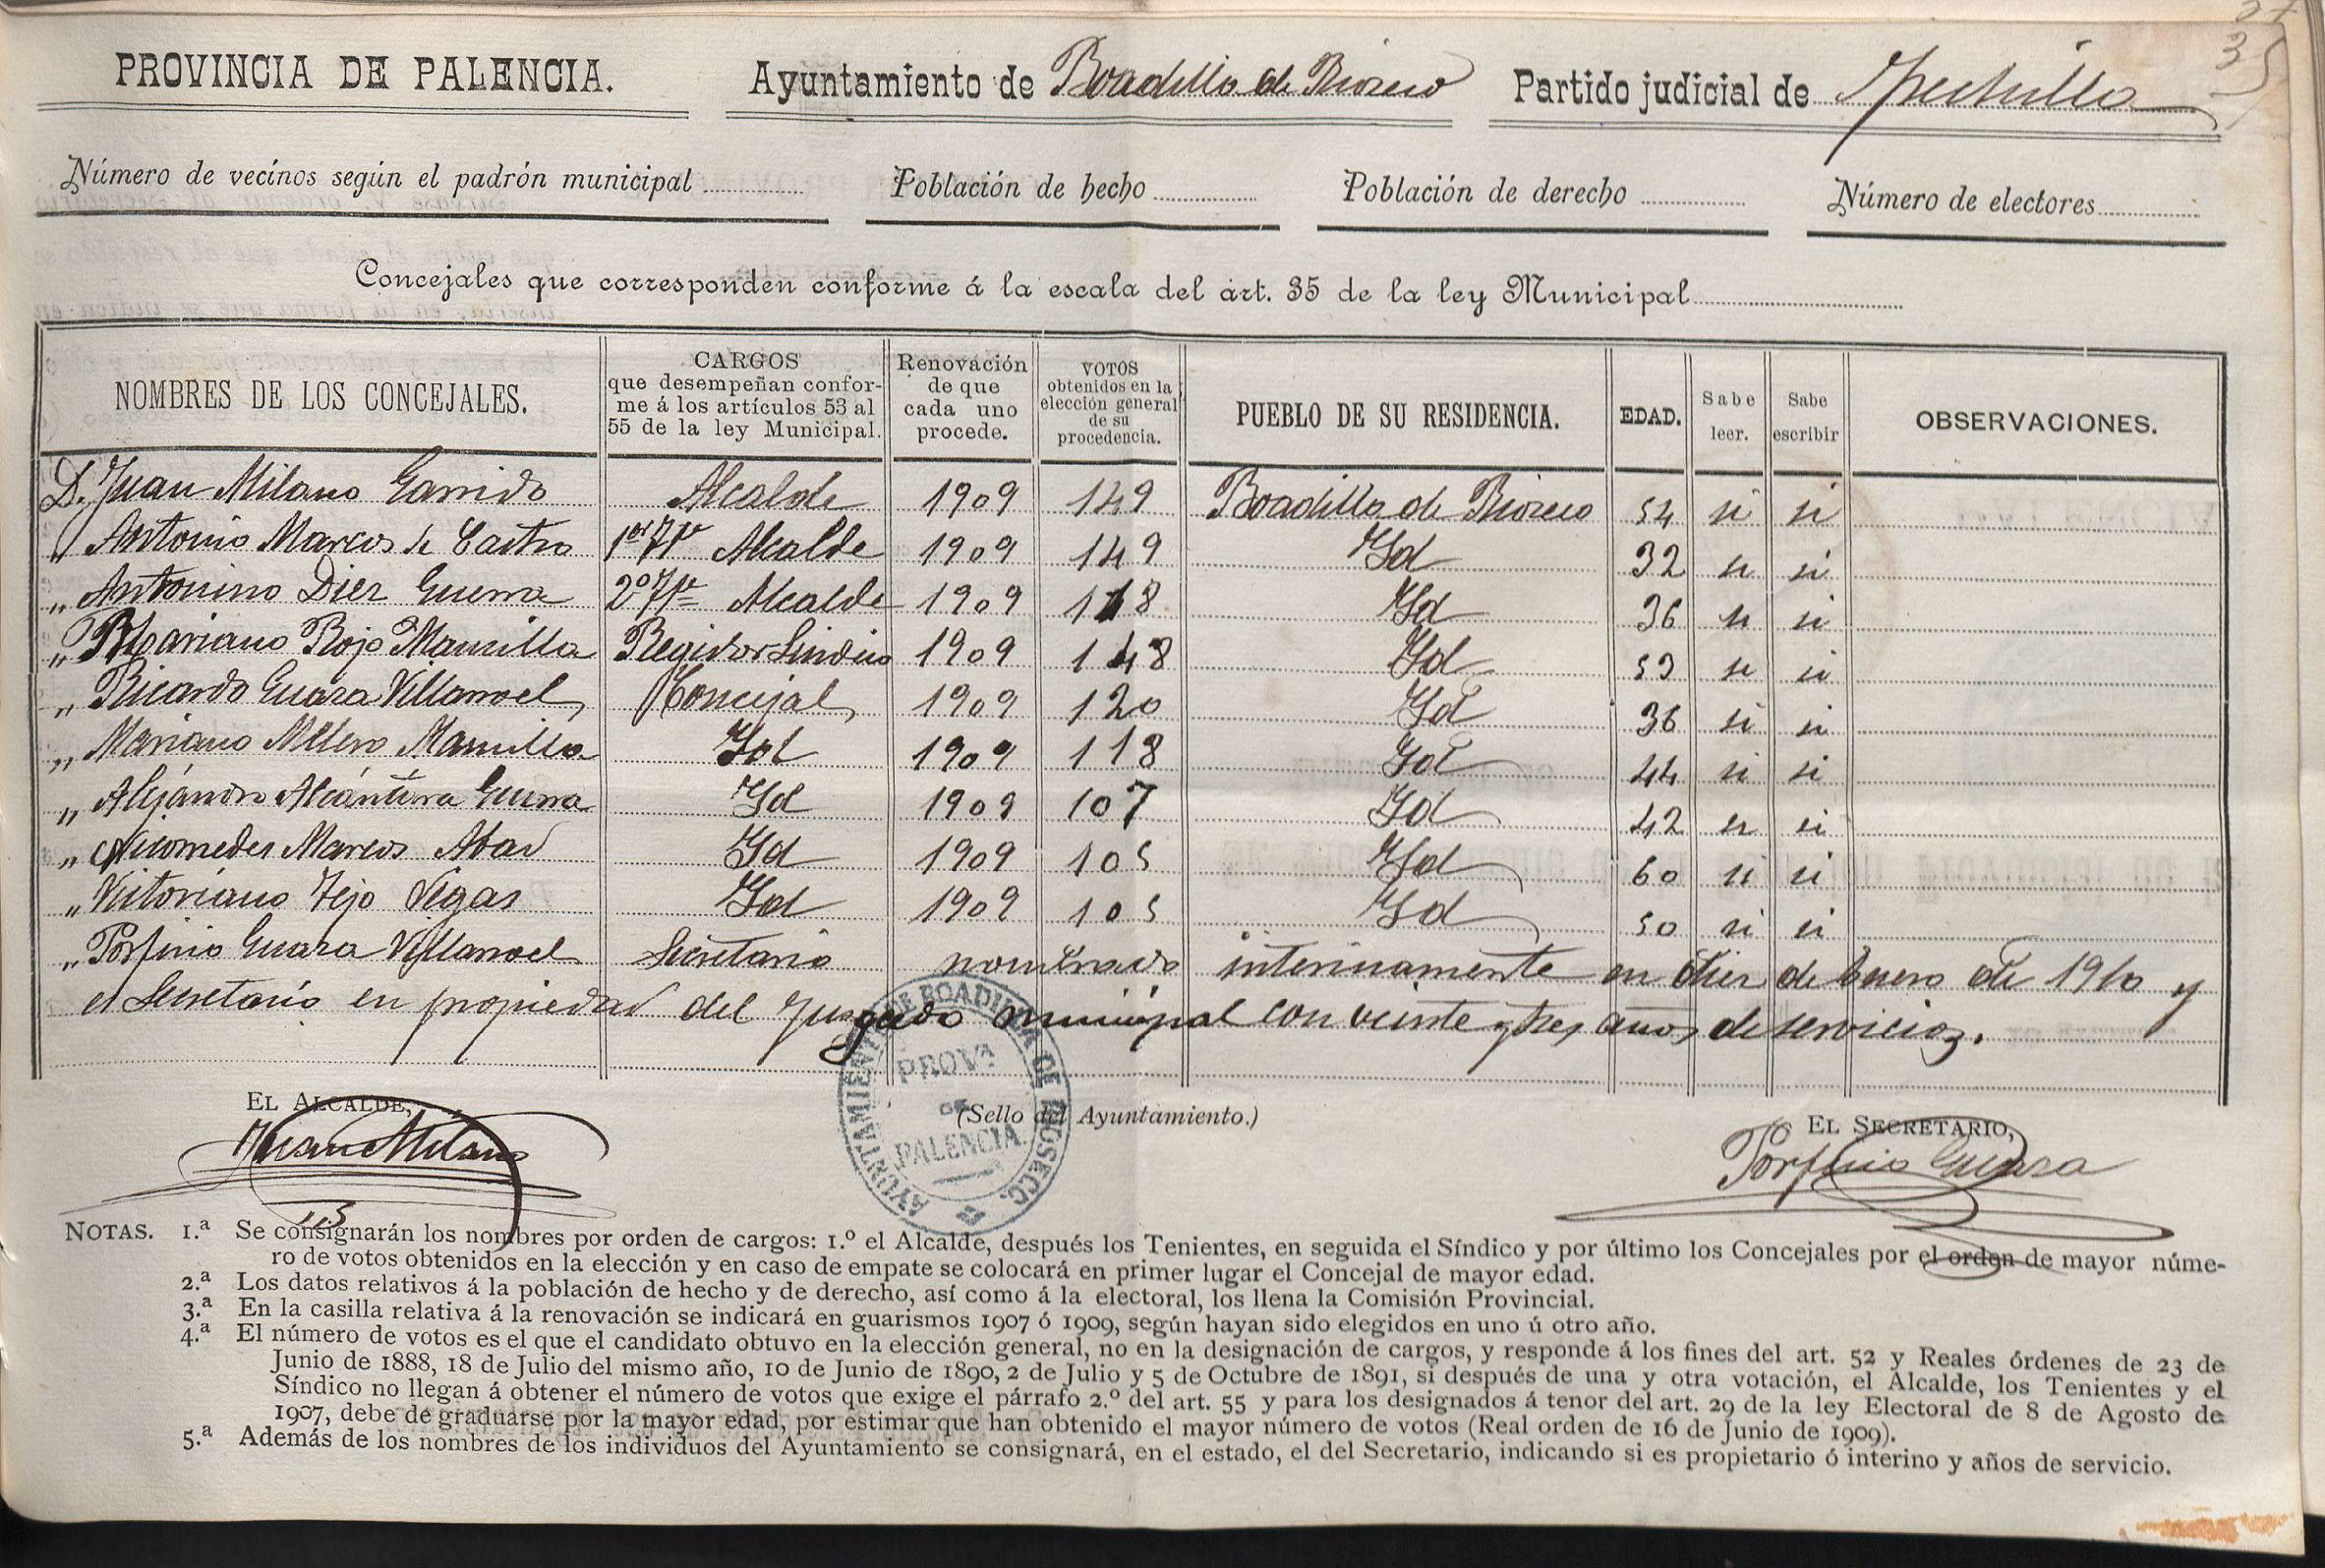 37
35
PROVINCIA DE PALENCIA. Ayuntamiento de Boadilla de Rioseco Partido judicial de Frechilla
Número de vecinos según el padrón municipal Población de hecho Población de derecho Número de electores
Concejales que corresponden conforme á la escala del art. 35 de la ley Municipal
NOMBRES DE LOS CONCEJALES. CARGOS que desempeñan conforme á los artículos 53 al 55 de la ley Municipal. Renovación de que cada uno procede. VOTOS obtenidos en la elección general de su procedencia. PUEBLO DE SU RESIDENCIA. EDAD. Sabe leer. Sabe escribir OBSERVACIONES.
D. Juan Milano Garrido Alcalde 1909 149 Boadilla de Rioseco 54 si si
" Antonio Marcos de Castro 1er Tte Alcalde 1909 149 Id 32 si si
" Antonino Diez Guerra 2º Tte Alcalde 1909 118 Id 36 si si
" Mariano Rojo Mancilla Regidor Sindico 1909 148 Id 53 si si
" Ricardo Guaza Villarroel Concejal 1909 120 Id 36 si si
" Mariano Melero Mancilla Id 1909 118 Id 44 si si
" Alejandro Alcántara Guerra Id 1909 107 Id 42 si si
" Nicomedes Marcos Abad Id 1909 105 Id 60 si si
" Vitoriano Tejo Vegas Id 1909 105 Id 50 si si
" Porfirio Guaza Villarroel Secretario nombrado interinamente en diez de Enero de 1910 y
el Secretario en propiedad del Juzgado municipal con veinte y tres años de servicios.
EL ALCALDE, (Sello del Ayuntamiento.) EL SECRETARIO,
Juan Milano Porfirio Guaza
AYUNTAMIENTO DE BOADILLA DE RIOSECO.
PROVª
DE
PALENCIA.
NOTAS. 1.ª Se consignarán los nombres por orden de cargos: 1.º el Alcalde, después los Tenientes, en seguida el Síndico y por último los Concejales por el orden de mayor núme-
ro de votos obtenidos en la elección y en caso de empate se colocará en primer lugar el Concejal de mayor edad.
2.ª Los datos relativos á la población de hecho y de derecho, así como á la electoral, los llena la Comisión Provincial.
3.ª En la casilla relativa á la renovación se indicará en guarismos 1907 ó 1909, según hayan sido elegidos en uno ú otro año.
4.ª El número de votos es el que el candidato obtuvo en la elección general, no en la designación de cargos, y responde á los fines del art. 52 y Reales órdenes de 23 de
Junio de 1888, 18 de Julio del mismo año, 10 de Junio de 1890, 2 de Julio y 5 de Octubre de 1891, si después de una y otra votación, el Alcalde, los Tenientes y el
Síndico no llegan á obtener el número de votos que exige el párrafo 2.º del art. 55 y para los designados á tenor del art. 29 de la ley Electoral de 8 de Agosto de
1907, debe de graduarse por la mayor edad, por estimar que han obtenido el mayor número de votos (Real orden de 16 de Junio de 1909).
5.ª Además de los nombres de los individuos del Ayuntamiento se consignará, en el estado, el del Secretario, indicando si es propietario ó interino y años de servicio.